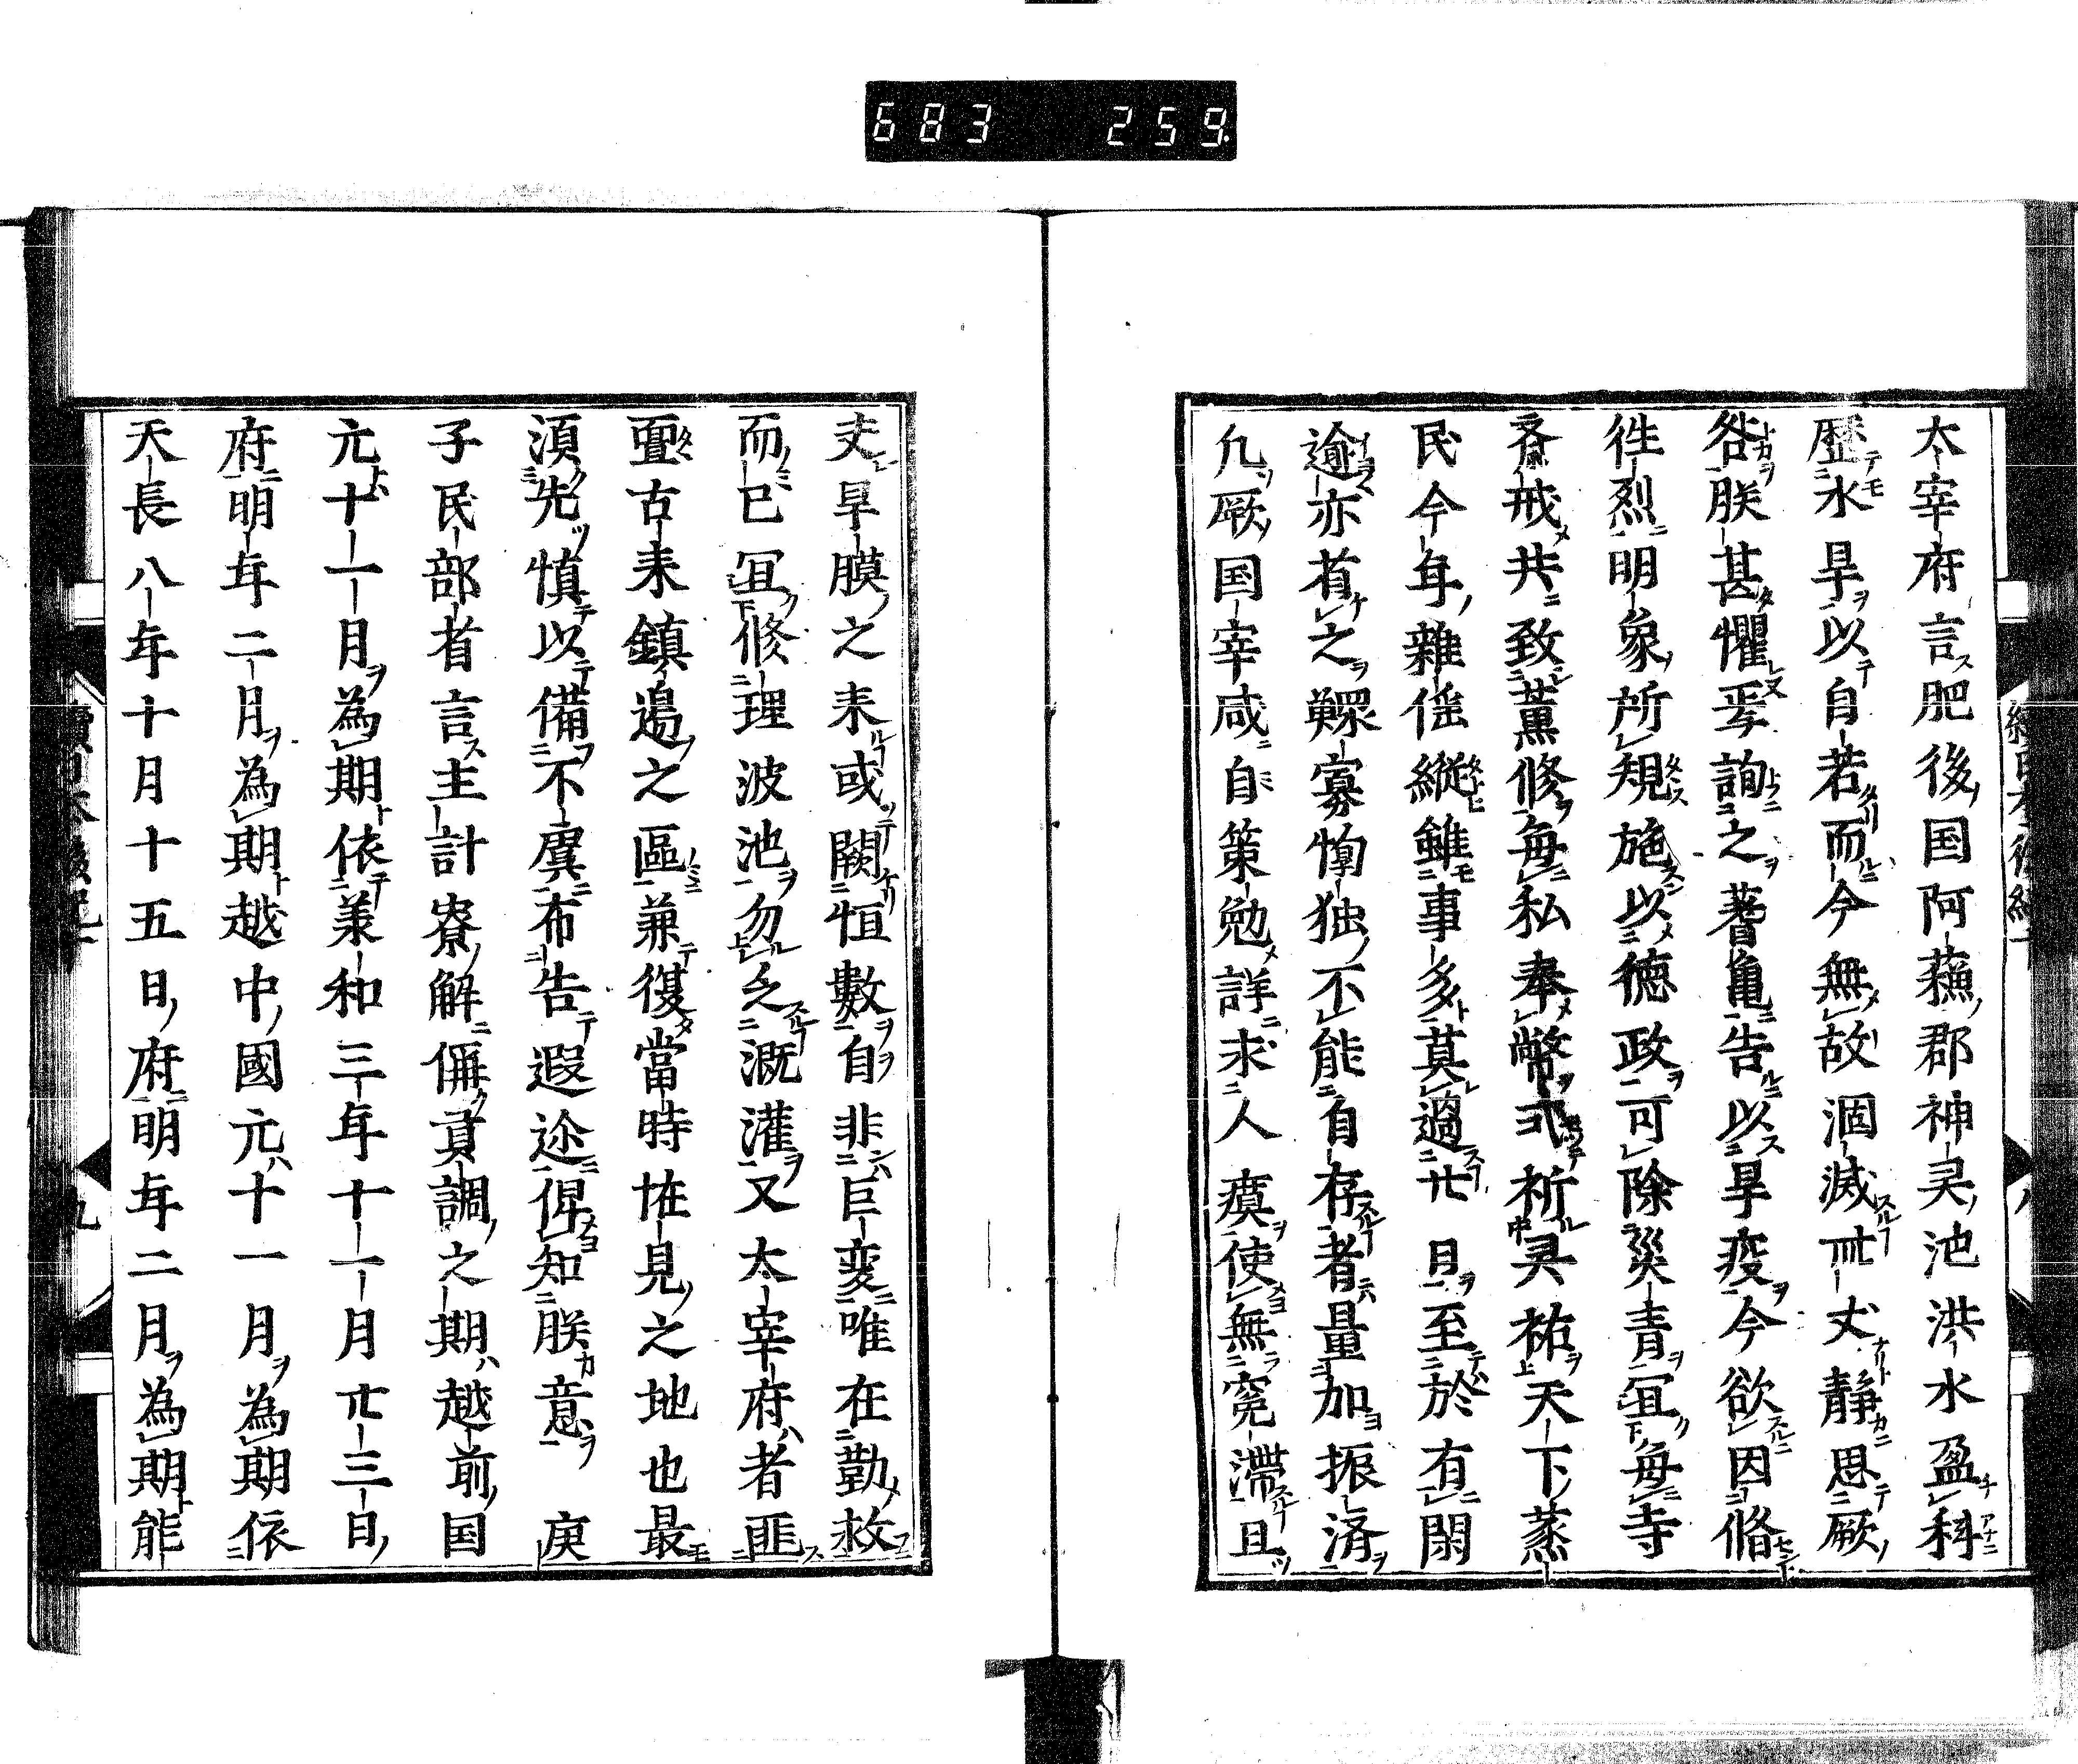 683 259
太宰府言肥後国阿蘓郡神灵池洪水盈科
歴水旱以自若而今無故涸減卌丈静思厥
咎朕甚懼焉詢之蓍亀告以旱疫今欲因脩
徃烈明象所規施以徳政可除災眚宜毎寺
斎戒共致薫修毎私奉幣弐祈冥祐天下蒸
民今年雜徭縦雖事多莫過廿日至於有閑
逾亦省之鰥寡惸独不能自存者量加振済
凢厥国宰咸自策勉詳求人瘼使無寃滯且
夫旱膜之来或闕恒數自非巨変唯在勤救
而已宜修理波池勿乏漑灌又太宰府者匪
啻古来鎮邊之區兼復當時恠見之地也最
湏先慎以備不虞布告遐迩俾知朕意 庚
子民部省言主計寮解偁貢調之期越前国
元十一月為期依羕和三年十一月廿三日
府明年二月為期越中國元十一月為期依
天長八年十月十五日府明年二月為期能
續日本後紀
九